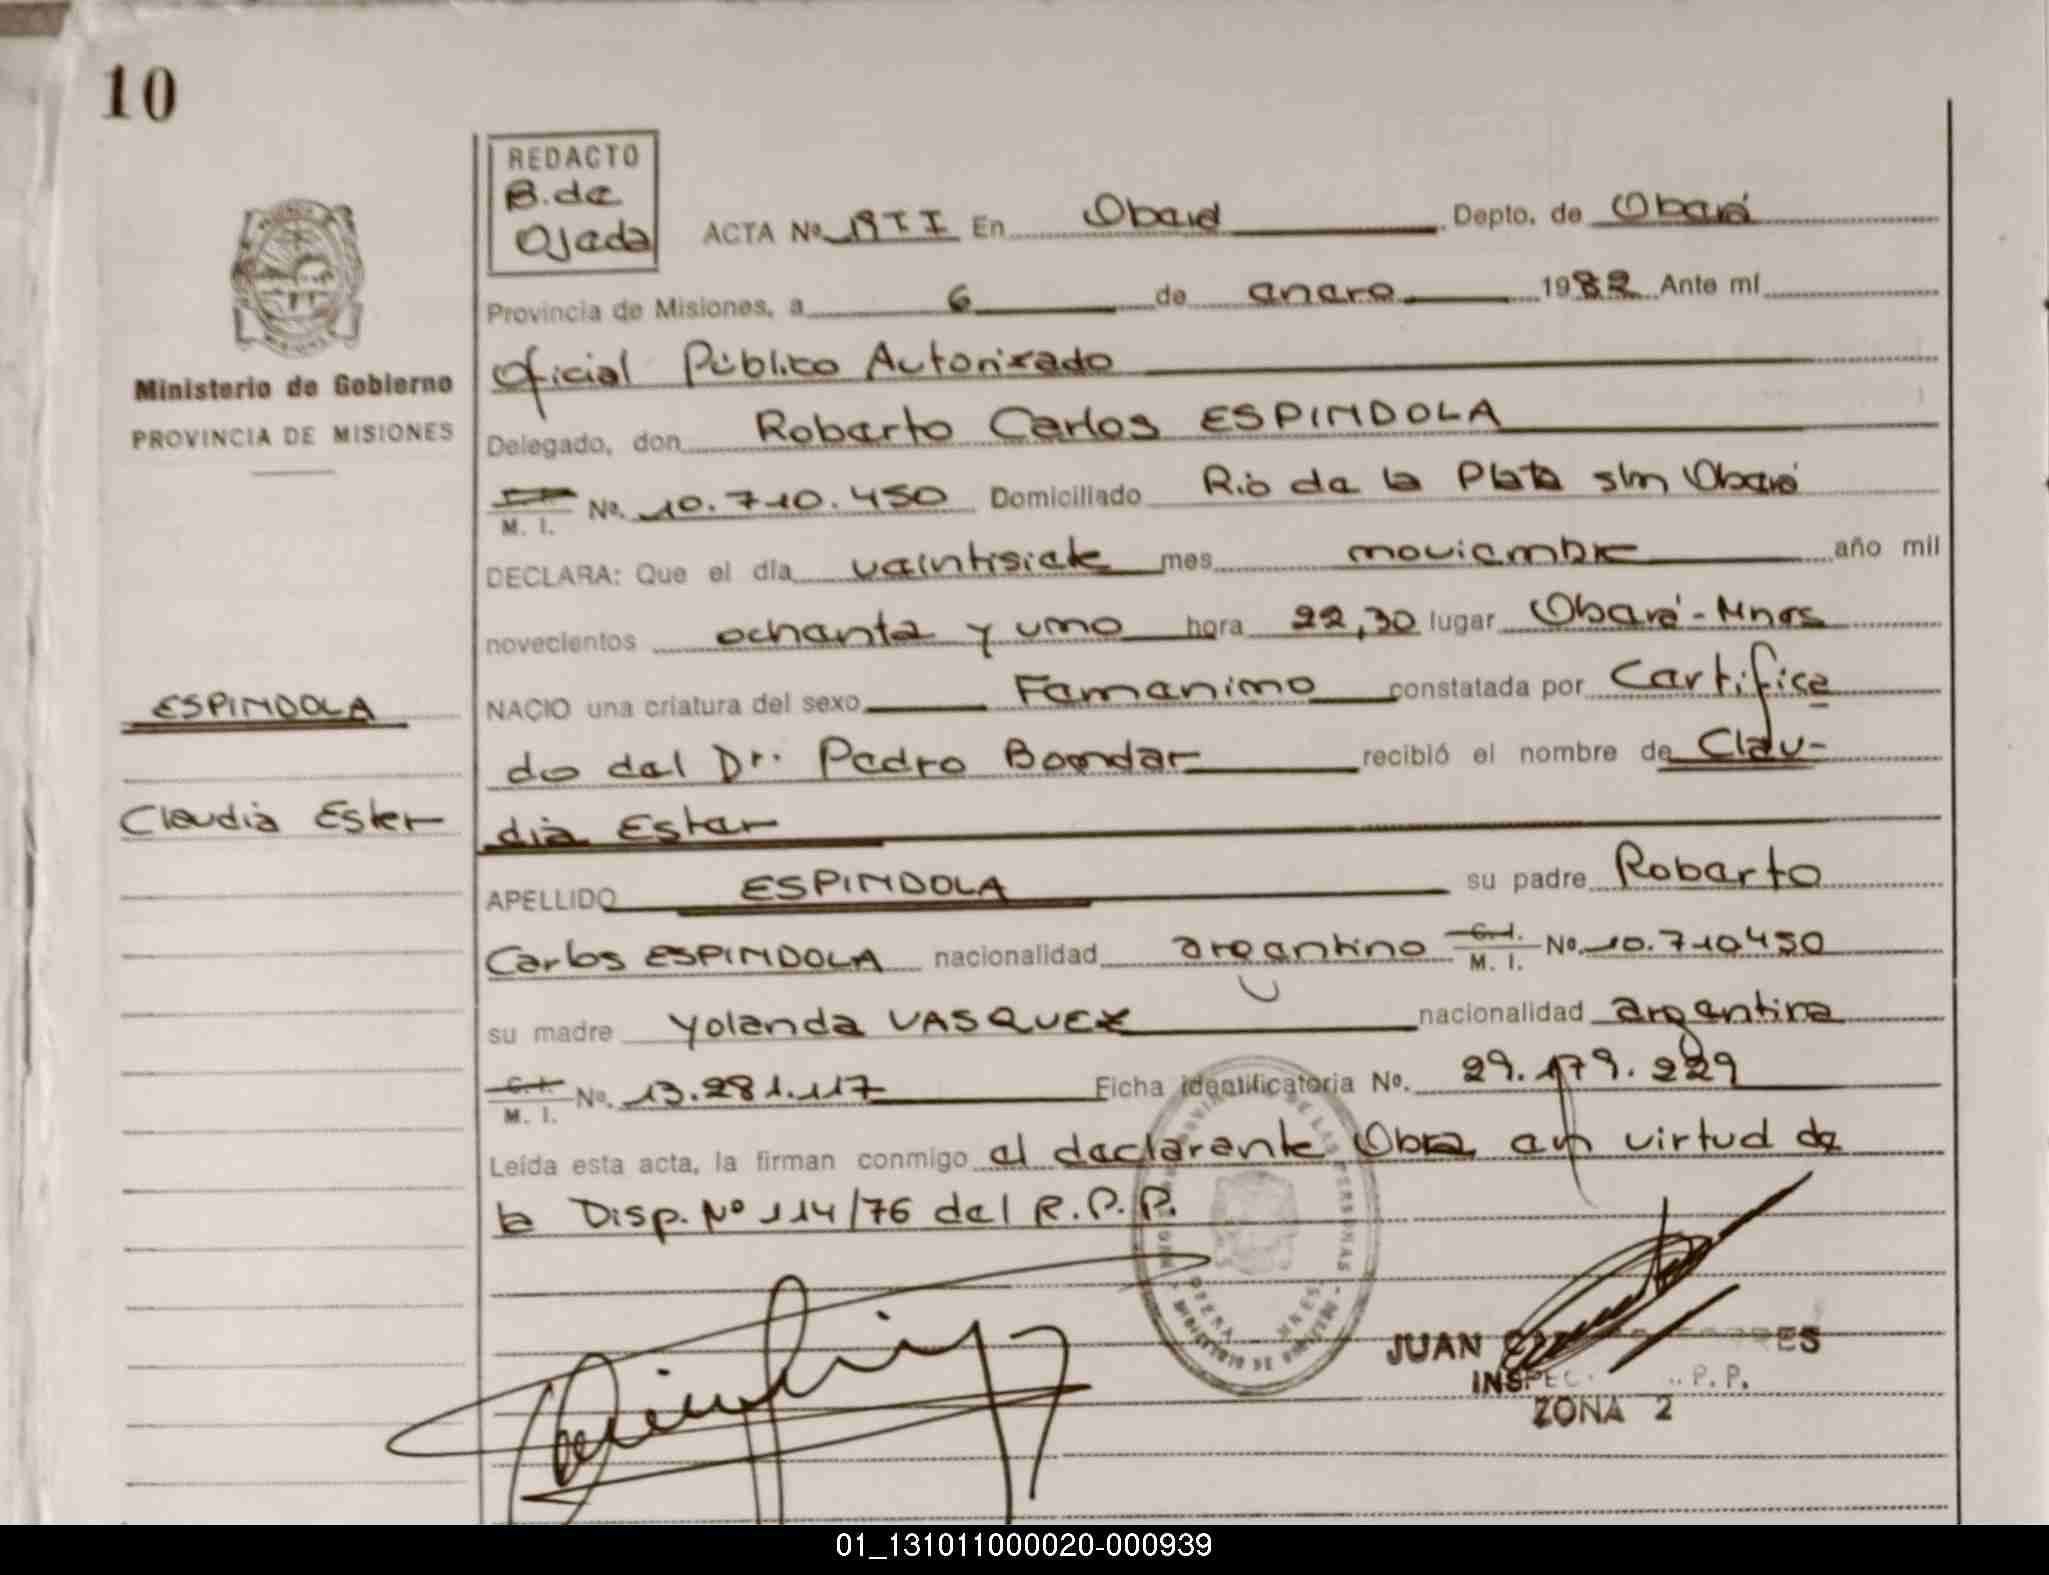 10
REDACTO
B. de
Ojeda
ACTA Nº 19 T I En Oberá Depto. de Oberá
Provincia de Misiones, a 6 de enero 1982 Ante mí
Ministerio de Gobierno
PROVINCIA DE MISIONES
Oficial Público Autorizado
Delegado, don Roberto Carlos ESPINDOLA
M. I. Nº. 10.710.450 Domiciliado Rio de la Plata s/n Oberá
DECLARA: Que el día veintisiete mes noviembre año mil
novecientos ochenta y uno hora 22,30 lugar Oberá - Mnes
NACIO una criatura del sexo Femenino constatada por Certifica
do del Dr. Pedro Bondar recibió el nombre de Clau-
dia Ester
ESPINDOLA
Claudia Ester
APELLIDO ESPINDOLA su padre Roberto
Carlos ESPINDOLA nacionalidad argentino C. I. M. I. Nº. 10.710450
su madre Yolanda VASQUEZ nacionalidad argentina
C. I. M. I. Nº. 13.281.117 Ficha identificatoria Nº. 29.179.229
Leída esta acta, la firman conmigo el declarante Obra en virtud de
la Disp. Nº 114/76 del R.P.P.
JUAN
INSPEC P. P.
ZONA 2
01_131011000020-000939